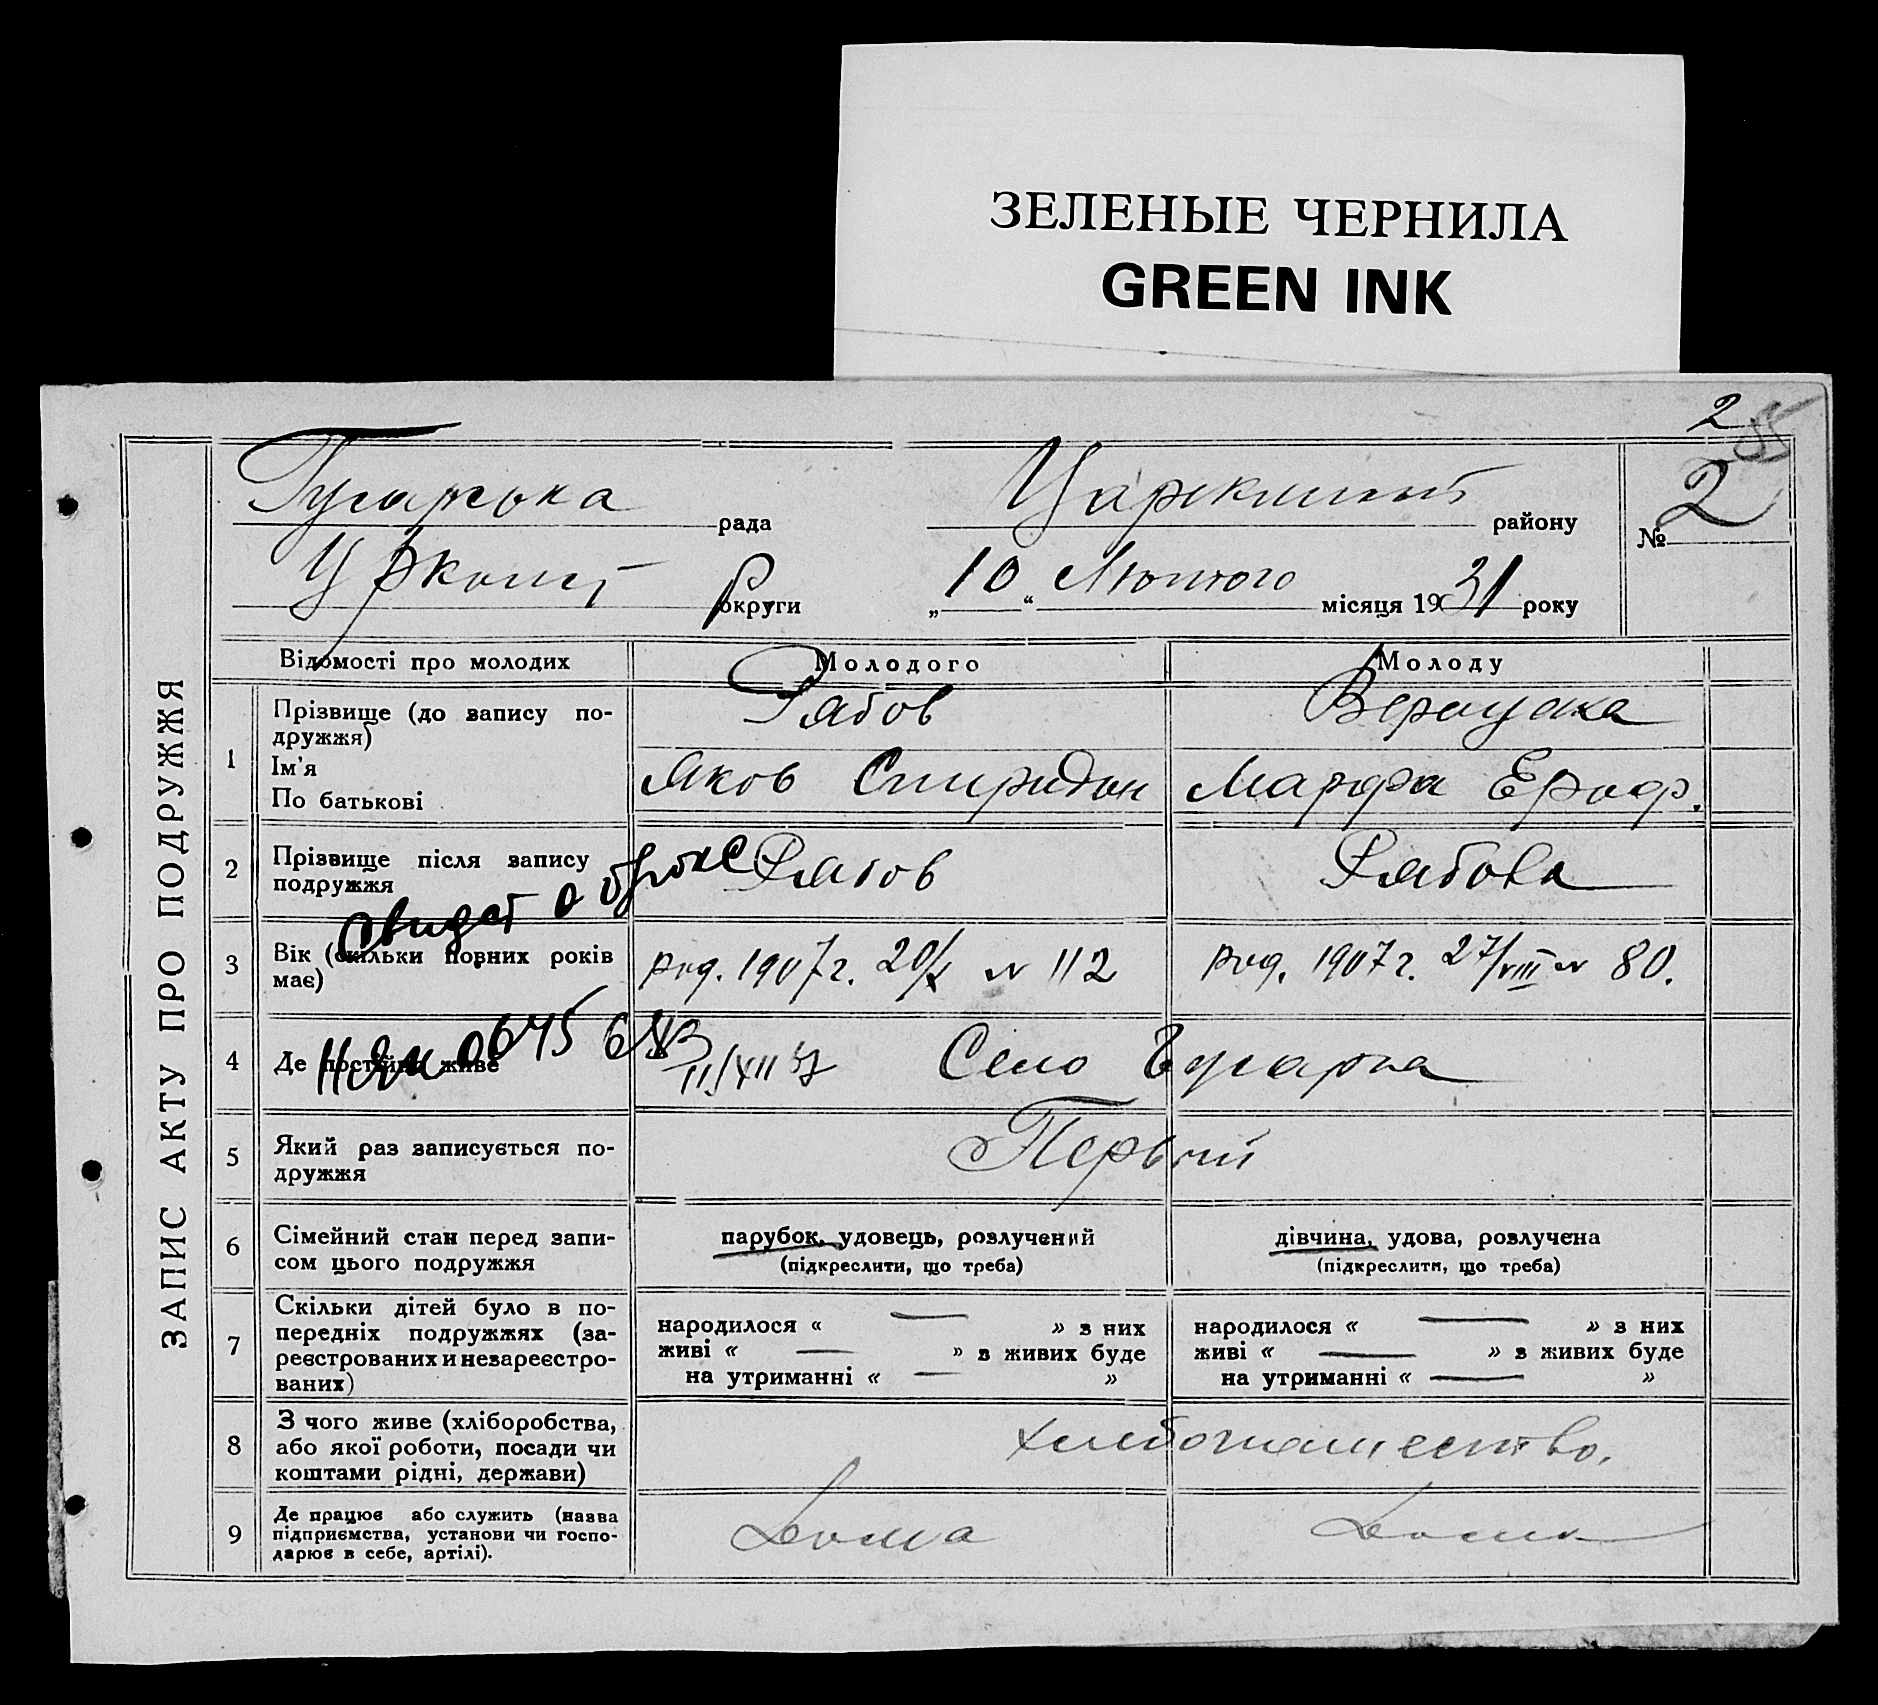 ЗЕЛЕНЫЕ ЧЕРНИЛА
GREEN INK
2
Гусарська рада
району
№ 2
округи
„10“ Лютого місяця 1931 року
ЗАПИС АКТУ ПРО ПОДРУЖЖЯ
Відомості про молодих
Молодого
Молоду
1
Прізвище (до запису по-
дружжя)
Ім'я
По батькові
Рябов
Яков Спиридон
Марфа Ероф.
2
Прізвище після запису
подружжя
Рябов
Рябова
свидет о браке
3
Вік (скільки повних років
має)
род. 1907 г. 20/X № 112
род. 1907 г. 27/VIII № 80.
4
Де постійно живе
Село Гусарка
5
Який раз записується по-
дружжя
Первый
6
Сімейний стан перед запи-
сом цього подружжя
парубок, удовець, розлучений
(підкреслити, що треба)
дівчина, удова, розлучена
(підкреслити, що треба)
7
Скільки дітей було в по-
передніх подружжях (за-
реєстрованих и незареєстро-
ваних)
народилося « — » з них
живі « — » з живих буде
на утриманні « — »
народилося « — » з них
живі « — » з живих буде
на утриманні « — »
8
З чого живе (хліборобства,
або якої роботи, посади чи
коштами рідні, держави)
хлебопашество.
9
Де працює або служить (назва
підприємства, установи чи госпо-
дарює в себе, артілі).
Дома
Дома